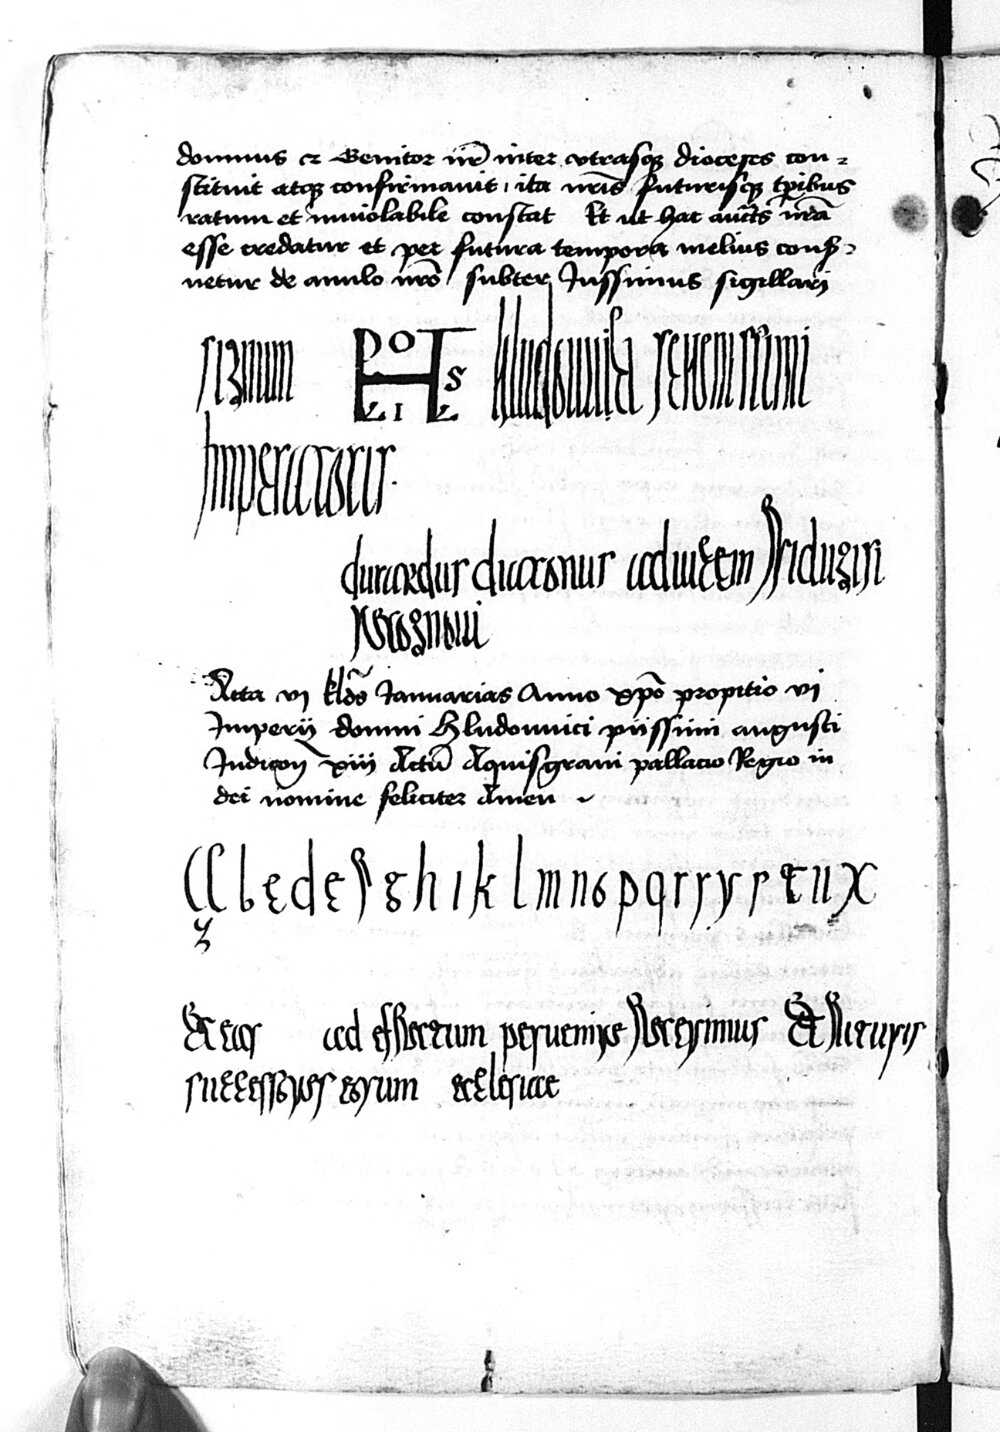 domnus et Genitor nr̄ inter vtrasqꝫ dioceses con⸗
stituit atqꝫ confirmauit, ita nrīs futurisqꝫ tp̄ibus
ratum et inuiolabile constat Et ut hac auctꝭ nrā
esse credatur et per futura tempora melius conß⸗
uetur de anulo nrō subter Jussimus sigillari
signum hludouuici serenissimi
Imperatoris.
durandus diaconus ad uicem fridugisi
recognoui
Acta vi klds Januarias Anno xp̄o propitio vi
Imperij domni Hludouuici pijssimi augusti
Indicōn xiii Actū Aquisgrani pallacio Regio in
dei nomine feliciter Amen
a b c d e f g h i k l m n o p q r r s t u x
z
et eas ad effectum peruenire et futuris
successores eorum ecclesiae